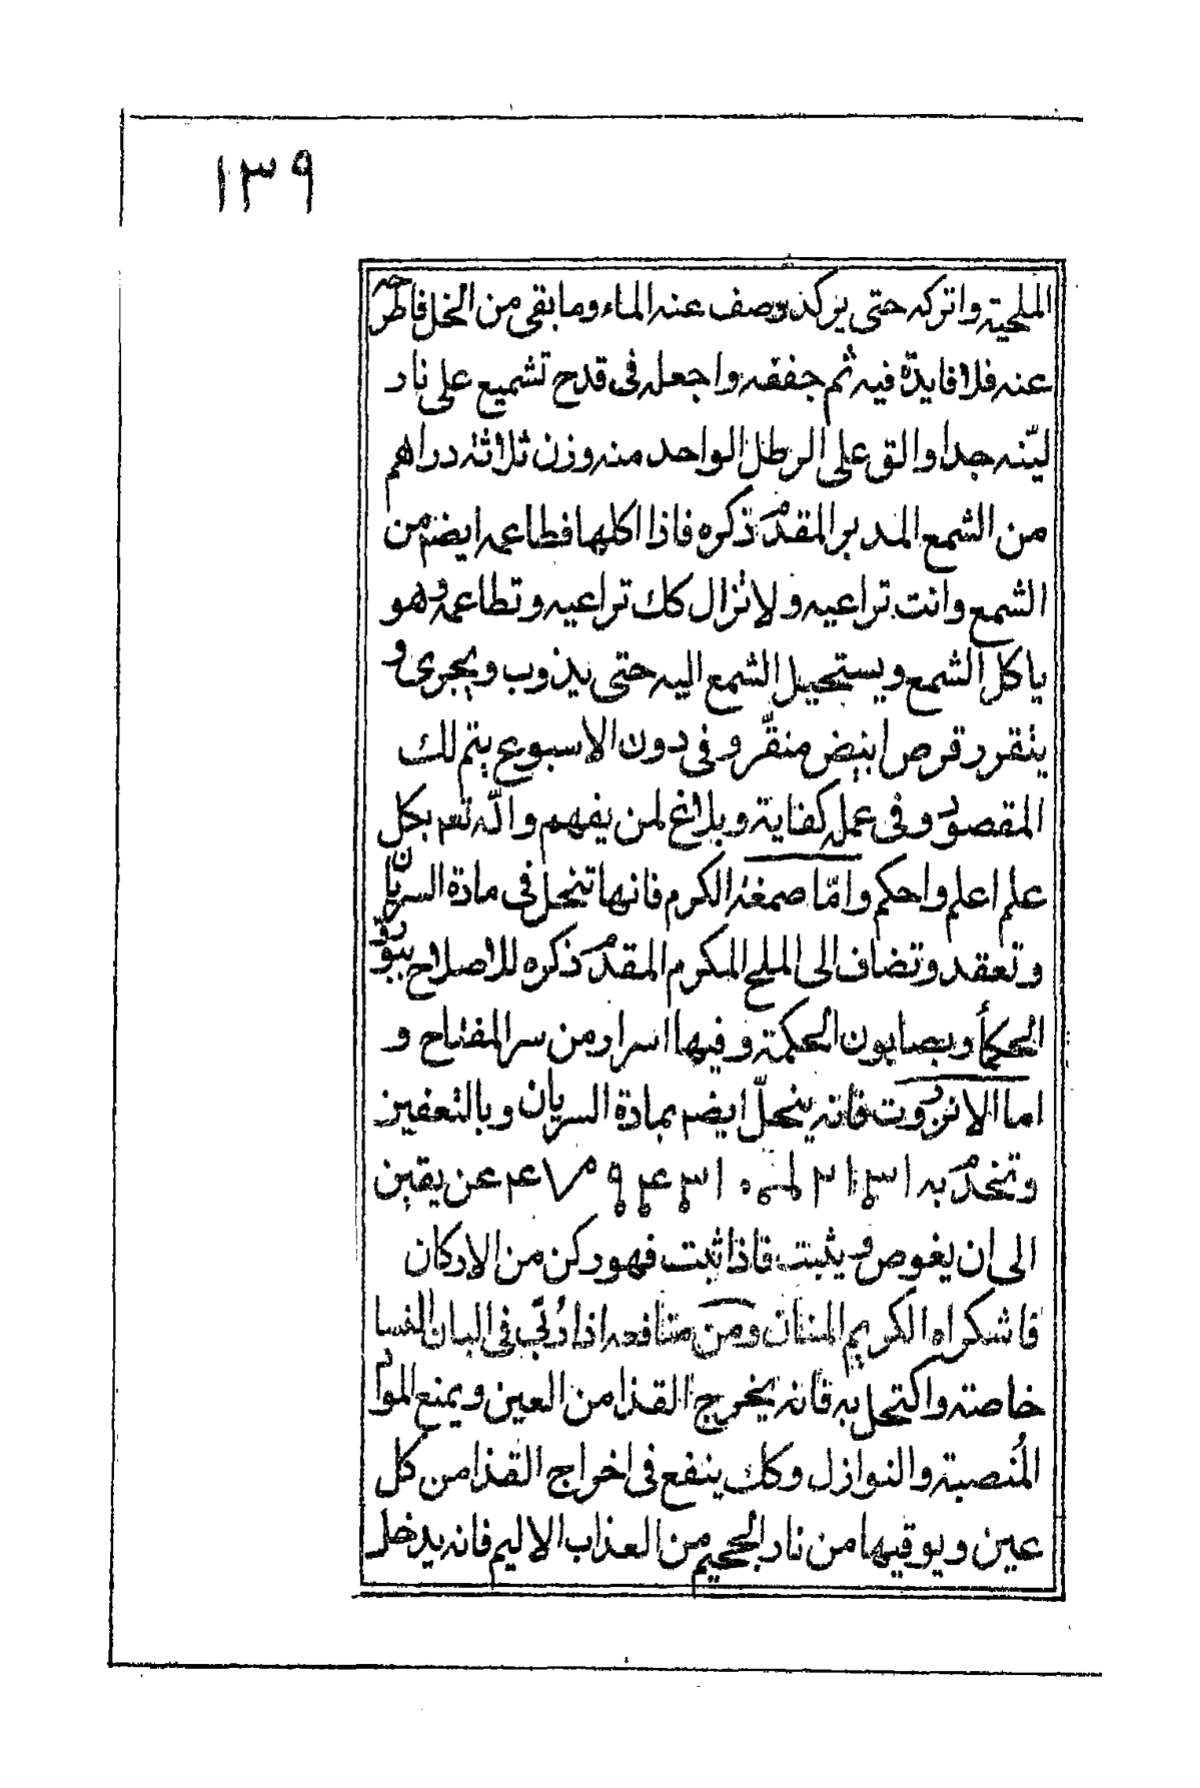 ١٣٩
الملحيته واتركه حتى يركد وصف عنه الماء وما بقى من الخل فاطرحه
عنه فلا فايدّه فيه ثم جففه واجعله فى قدح تشميع على نار
ليّنه جدا والق على الرطل الواحد منه وزن ثلاثة دراهم
من الشمع المدبر المقدم ذكره فاذا اكلها فطاعمه ايضم من
الشمع وانت تراعيه ولا تزال كك تراعيه وتطاعمه وهو
ياكل الشمع ويستحيل الشمع اليه حتى يذوب ويجرى و
يتقرر قرص ابيض منقّر وفى دون الاسبوع يتم لك
المقصود وفى عمله كفاية وبلاغ لمن يفهم والّه تعم بكل
علم اعلم واحكم وامّا صمغة الكرم فانها تنحل فى مادة السريان
وتعقد وتضاف الى الملح المكرم المقدم ذكره للاصلاح ببورق
الحكمأ وبصابون الحكمة وفيها اسرار من سر المفتاح و
اما الانزروت فانه ينحلّ ايضم بمادة السريان وبالتعفين
وتخدم به عن يقين
الى ان يغوص ويثبت فاذا ثبت فهو ركن من الاركان
فاشكر اه الكريم المنان ومن منافعه اذا رُبّى فى البان النسا
خاصته واكتحل به فانه يخرج القذا من العين ويمنع المواد
المُنصبة والنوازل وكك ينفع فى اخراج القذا من كل
عين ويوقيها من نار الجحيم من العذاب الاليم فانه يدخل